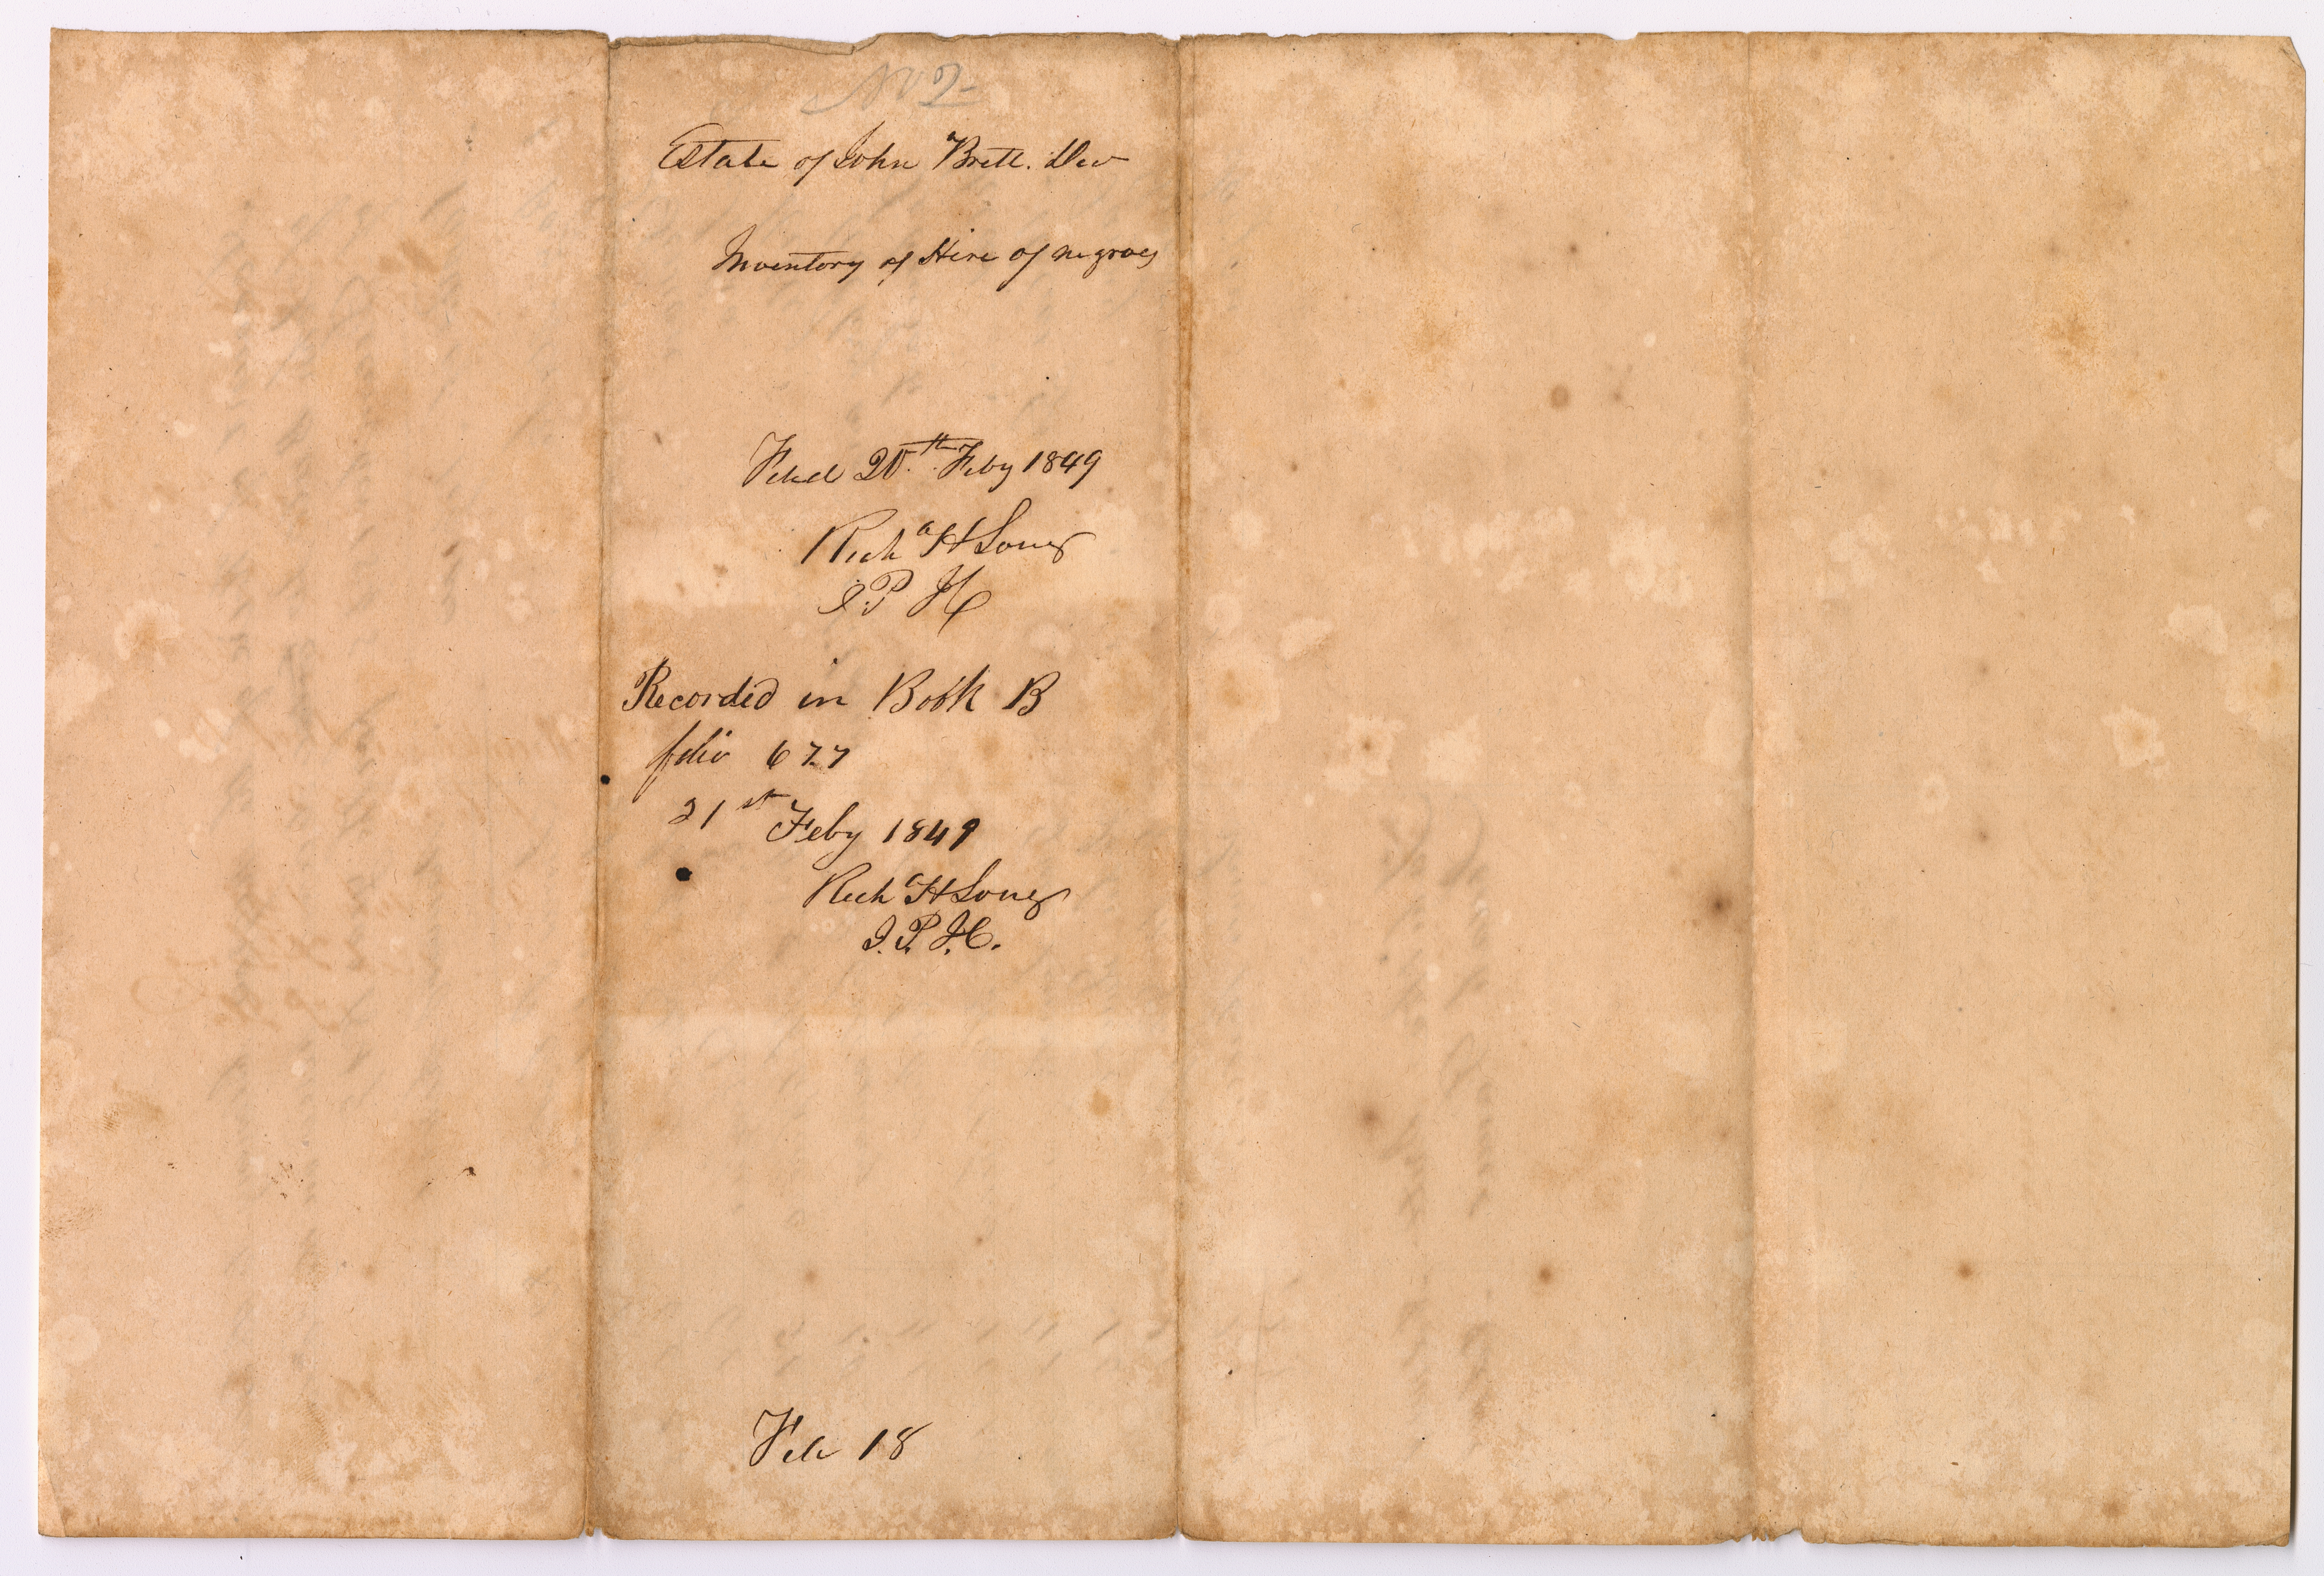 No 7
Estate of John Brett. Dec
Inventory of Hire of negroes
Filed 20th Feby 1849
Richd H Long
J. P. H
Recorded in Book B
folio 677
21st Feby 1849
Richd H Long
J. P. H.
Feb 18